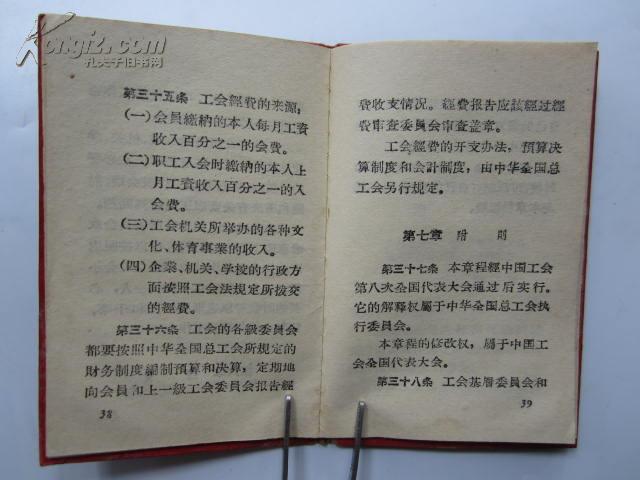 Kongfz.com
孔夫子旧书网
第三十五条 工会經費的来源:
(一)会員繳納的本人每月工資
收入百分之一的会費。
(二)职工入会时繳納的本人上
月工資收入百分之一的入
会費。
(三)工会机关所举办的各种文
化、体育事業的收入。
(四)企業、机关、学校的行政方
面按照工会法規定所拨交
的經費。
第三十六条 工会的各級委員会
都要按照中华全国总工会所規定的
財务制度編制預算和决算,定期地
向会員和上一級工会委員会报告經
38
費收支情况。經費报告应該經过經
費审查委員会审查盖章。
工会經費的开支办法,預算决
算制度和会計制度,由中华全国总
工会另行規定。
第七章 附 則
第三十七条 本章程經中国工会
第八次全国代表大会通过后实行。
它的解釋权屬于中华全国总工会执
行委員会。
本章程的修改权,屬于中国工
会全国代表大会。
第三十八条 工会基層委員会和
39